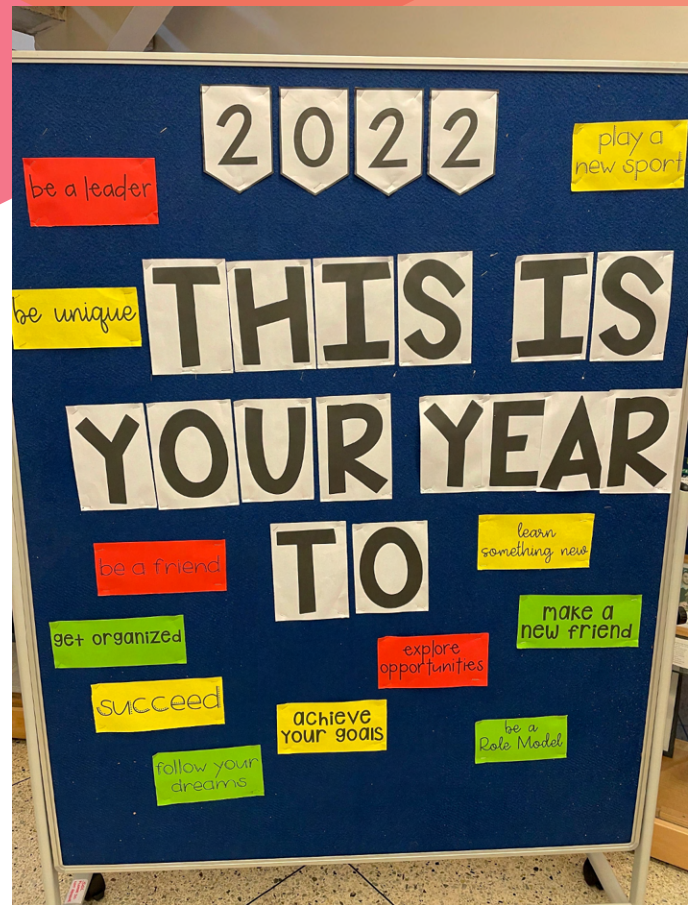 2022
be a leader
play a
new sport
be unique
THIS IS
YOUR YEAR
TO
learn
something new
be a friend
make a
new friend
get organized
explore
opportunities
succeed
achieve
your goals
be a
Role Model
follow your
dreams